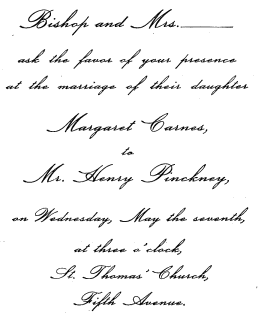 Bishop and Mrs.
ask the favor of your presence
at the marriage of their daughter
Margaret Carnes,
to
Mr. Henry Pinckney,
on Wednesday, May the seventh,
at three o'clock,
St. Thomas' Church,
Fifth Avenue.